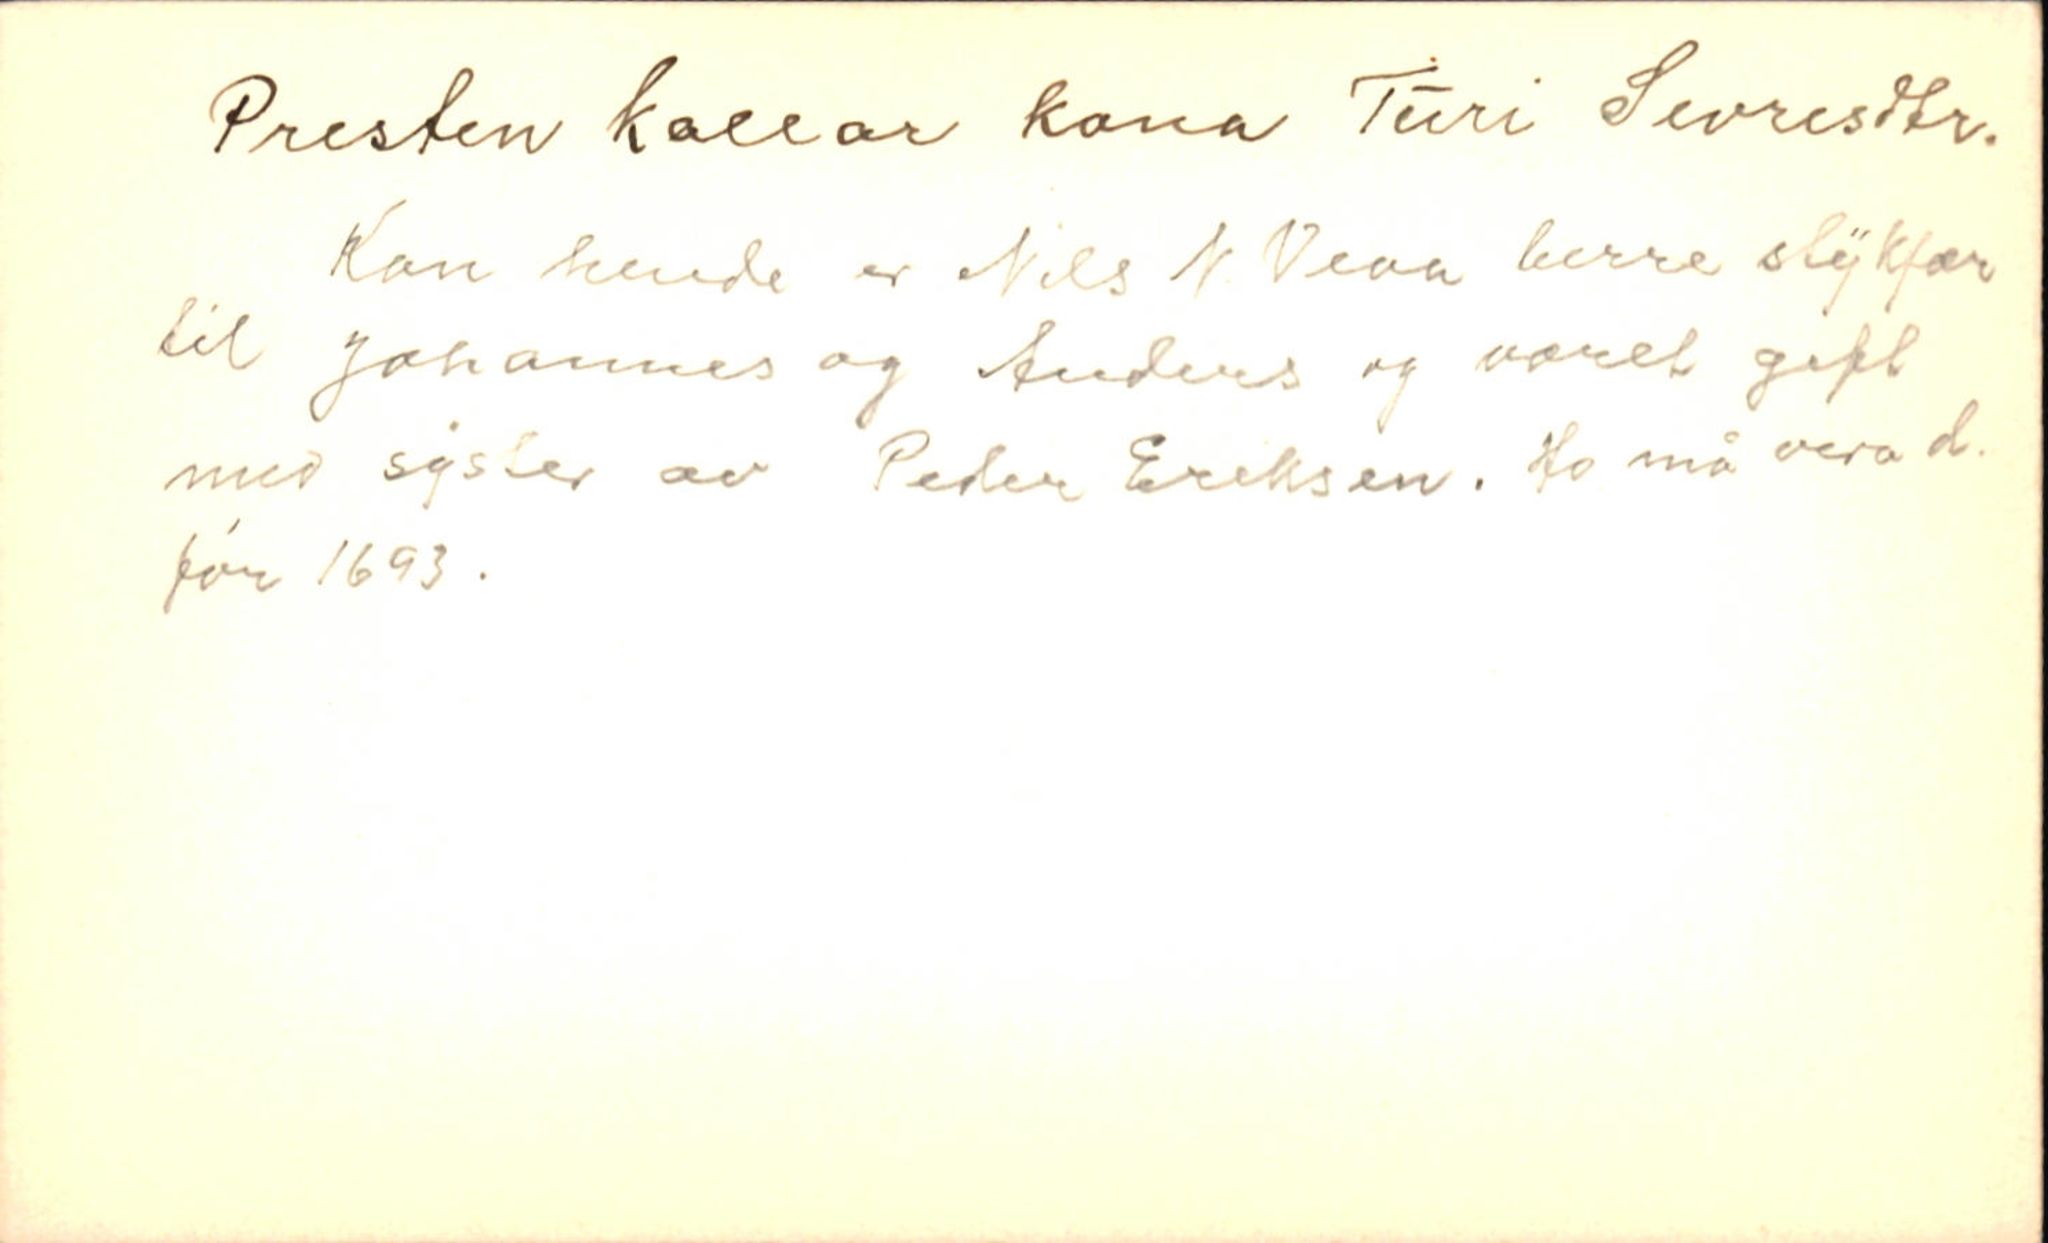 Presten kallar kona Turi Sevresdtr.
Kan hende er Nils N. Veva berre stykfar
til Johannes og Anders og været gift
med syster av Peder Eriksen. Ho må vera d.
før 1693.